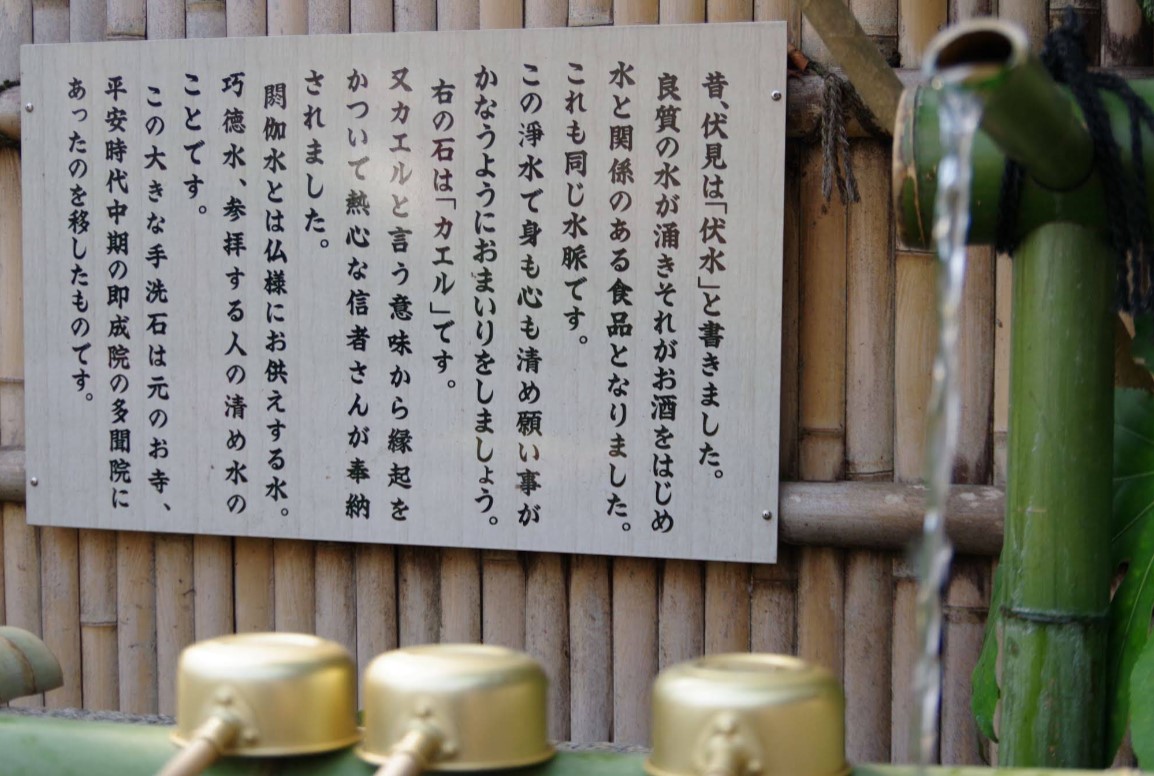 昔、伏見は「伏水」と書きました。
良質の水が涌きそれがお酒をはじめ
水と関係のある食品となりました。
これも同じ水脈です。
この淨水で身も心も清め願い事が
かなうようにおまいりをしましょう。
右の石は「カエル」です。
又カエルと言う意味から縁起を
かついで熱心な信者さんが奉納
されました。
閼伽水とは仏様にお供えする水。
巧徳水、参拝する人の清め水の
ことです。
この大きな手洗石は元のお寺、
平安時代中期の即成院の多聞院に
あったのを移したものです。